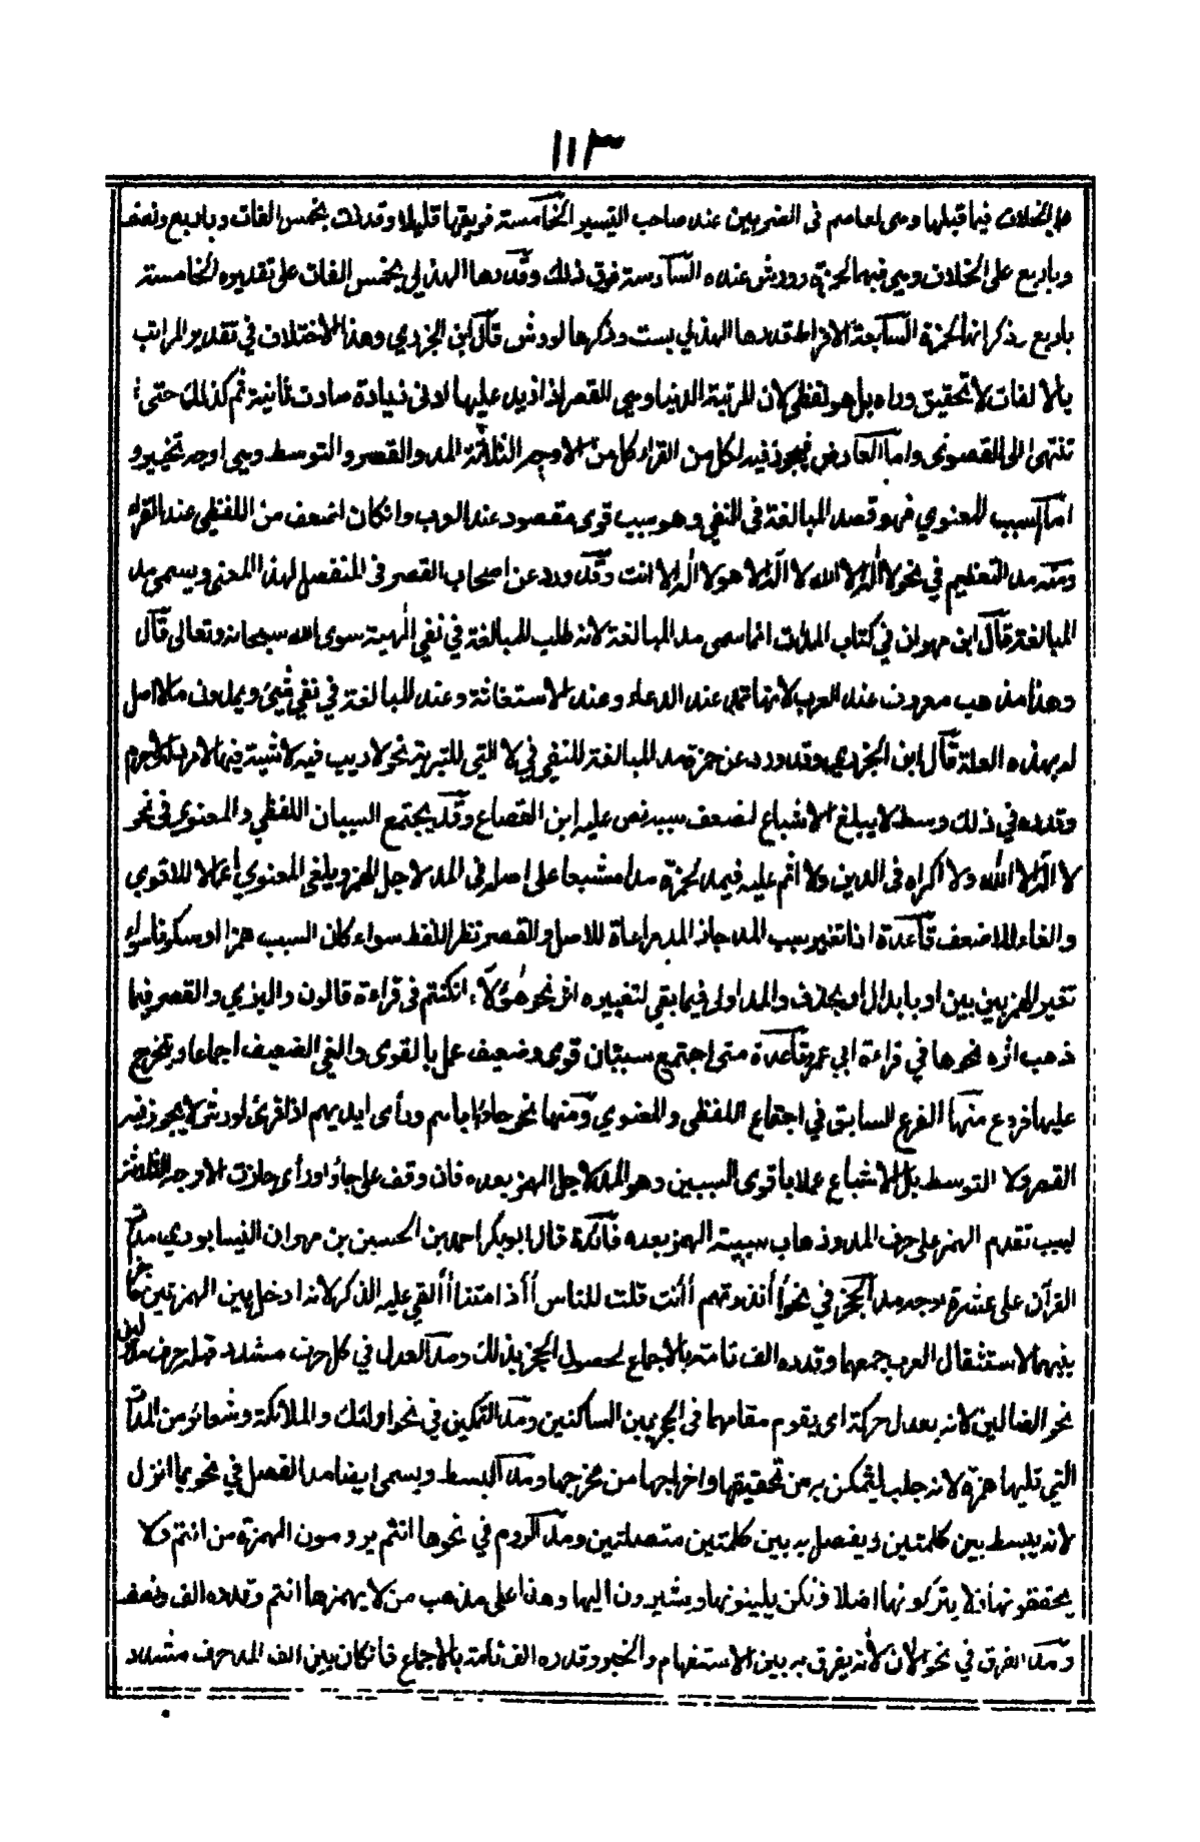 ١١٣
على الخلاف فيما قبلها وهى لعاصم فى الضربين عند صاحب التيسير الخامسة فويقها قليلا وقدرت بخمس الفات وباربع ونصف
وباربع على الخلاف وهي فيهما لحمزة وورش عنده السادسة فوق ذلك وقدرها الهذلي بخمس الفات على تقديره الخامسة
باربع وذكر انها لحمزة السابعة الافراط قدرها الهذلي بست وذكرها لورش قال ابن الجزري وهذا الاختلاف في تقدير المراتب
بالالفات لا تحقيق وراءه بل هو لفظي لان المرتبة الدنيا وهي القصر اذا زيد عليها ادنى زيادة صارت ثانية ثم كذلك حتى
تنتهى الى القصوى واما العارض فيجوز فيه لكل من القراء كل من الاوجه الثلاثة المد والقصر والتوسط وهى اوجه تخيير و
اما السبب المعنوي فهو قصد المبالغة فى النفي وهو سبب قوى مقصود عند العرب وان كان اضعف من اللفظي عند القراء
ومنه مد التعظيم في نحو لا اله الا الله لا اله الا هو لا اله الا انت وقد ورد عن اصحاب القصر فى المنفصل لهذا المعنى ويسمى مد
المبالغة قال ابن مهران في كتاب المدات انما سمى مد المبالغة لانه طلب للمبالغة في نفي الهية سوى الله سبحانه وتعالى قال
وهذا مذهب معروف عند العرب لانها تمد عند الدعاء وعند الاستغاثة وعند المبالغة في نفي شيئ ويمدون ما لا اصل
له بهذه العلة قال ابن الجزري وقد ورد عن حمزة مد المبالغة للنفي في لا التي للتبرية نحو لا ريب فيه لا شية فيها لا مرد له لا جرم
وقدره في ذلك وسط لا يبلغ الاشباع لضعف سببه نص عليه ابن القصاع وقد يجتمع السببان اللفظي والمعنوي فى نحو
لا اله الا الله ولا اكراه فى الدين ولا اثم عليه فيمد لحمزة مدا مشبعا على اصله فى المد لاجل الهمز ويلغى المعنوي اعمالا للاقوي
والغاء للاضعف قاعدة اذا تغير سبب المد جاز المد مراعاة للاصل والقصر نظرا للفظ سواء كان السبب همزا او سكونا سواء
تغير الهمز ببين بين او بابدال او بحذف والمد اولى فيما بقي لتغييره اثر نحو هؤلاء ان كنتم فى قراءة قالون والبزي والقصر فيما
ذهب اثره نحوها في قراءة ابي عمرو قاعدة متى اجتمع سببان قوى وضعيف عمل بالقوى والغى الضعيف اجماعا وتخرج
عليها فروع منها الفرع السابق في اجتماع اللفظى والمعنوي ومنها نحو جاؤا اباهم ورأى ايديهم اذا قرئ لورش لا يجوز فيه
القصر ولا التوسط بل الاشباع عملا باقوى السببين وهو المد لاجل الهمز بعده فان وقف على جاؤا او رأى جازت الاوجه الثلاثة
لسبب تقدم الهمز على حرف المد وذهاب سببية الهمز بعده فائدة قال ابو بكر احمد بن الحسين بن مهران النيسابوري مدات
القرآن على عشرة اوجه مد الحجز في نحو أأنذرتهم أأنت قلت للناس أأذا متنا أألقي عليه الذكر لانه ادخل بين الهمزتين حاجزا
بينهما لاستثقال العرب جمعهما وقدره الف تامة بالاجماع لحصول الحجز بذلك ومد العدل في كل حرف مشدد قبله حرف مد ولين
نحو الضالين لانه يعدل حركة اى يقوم مقامها فى الحجز بين الساكنين ومد التمكين في نحو اولئك والملائكة وشعائر من المدات
التي تليها همزة لانه جلب ليتمكن به من تحقيقها واخراجها من مخرجها ومد البسط ويسمى ايضا مد الفصل في نحو بما انزل
لانه يبسط بين كلمتين ويفصل به بين كلمتين متصلتين ومد الروم في نحو ها انتم يرومون الهمزة من انتم ولا
يحققونها ولا يتركونها اصلا ولكن يلينونها ويشيرون اليها وهذا على مذهب من لا يهمز ها انتم وقدره الف ونصف
ومد الفرق في نحو الان لانه يفرق به بين الاستفهام والخبر وقدره الف تامة بالاجماع فان كان بين الف المد حرف مشدد